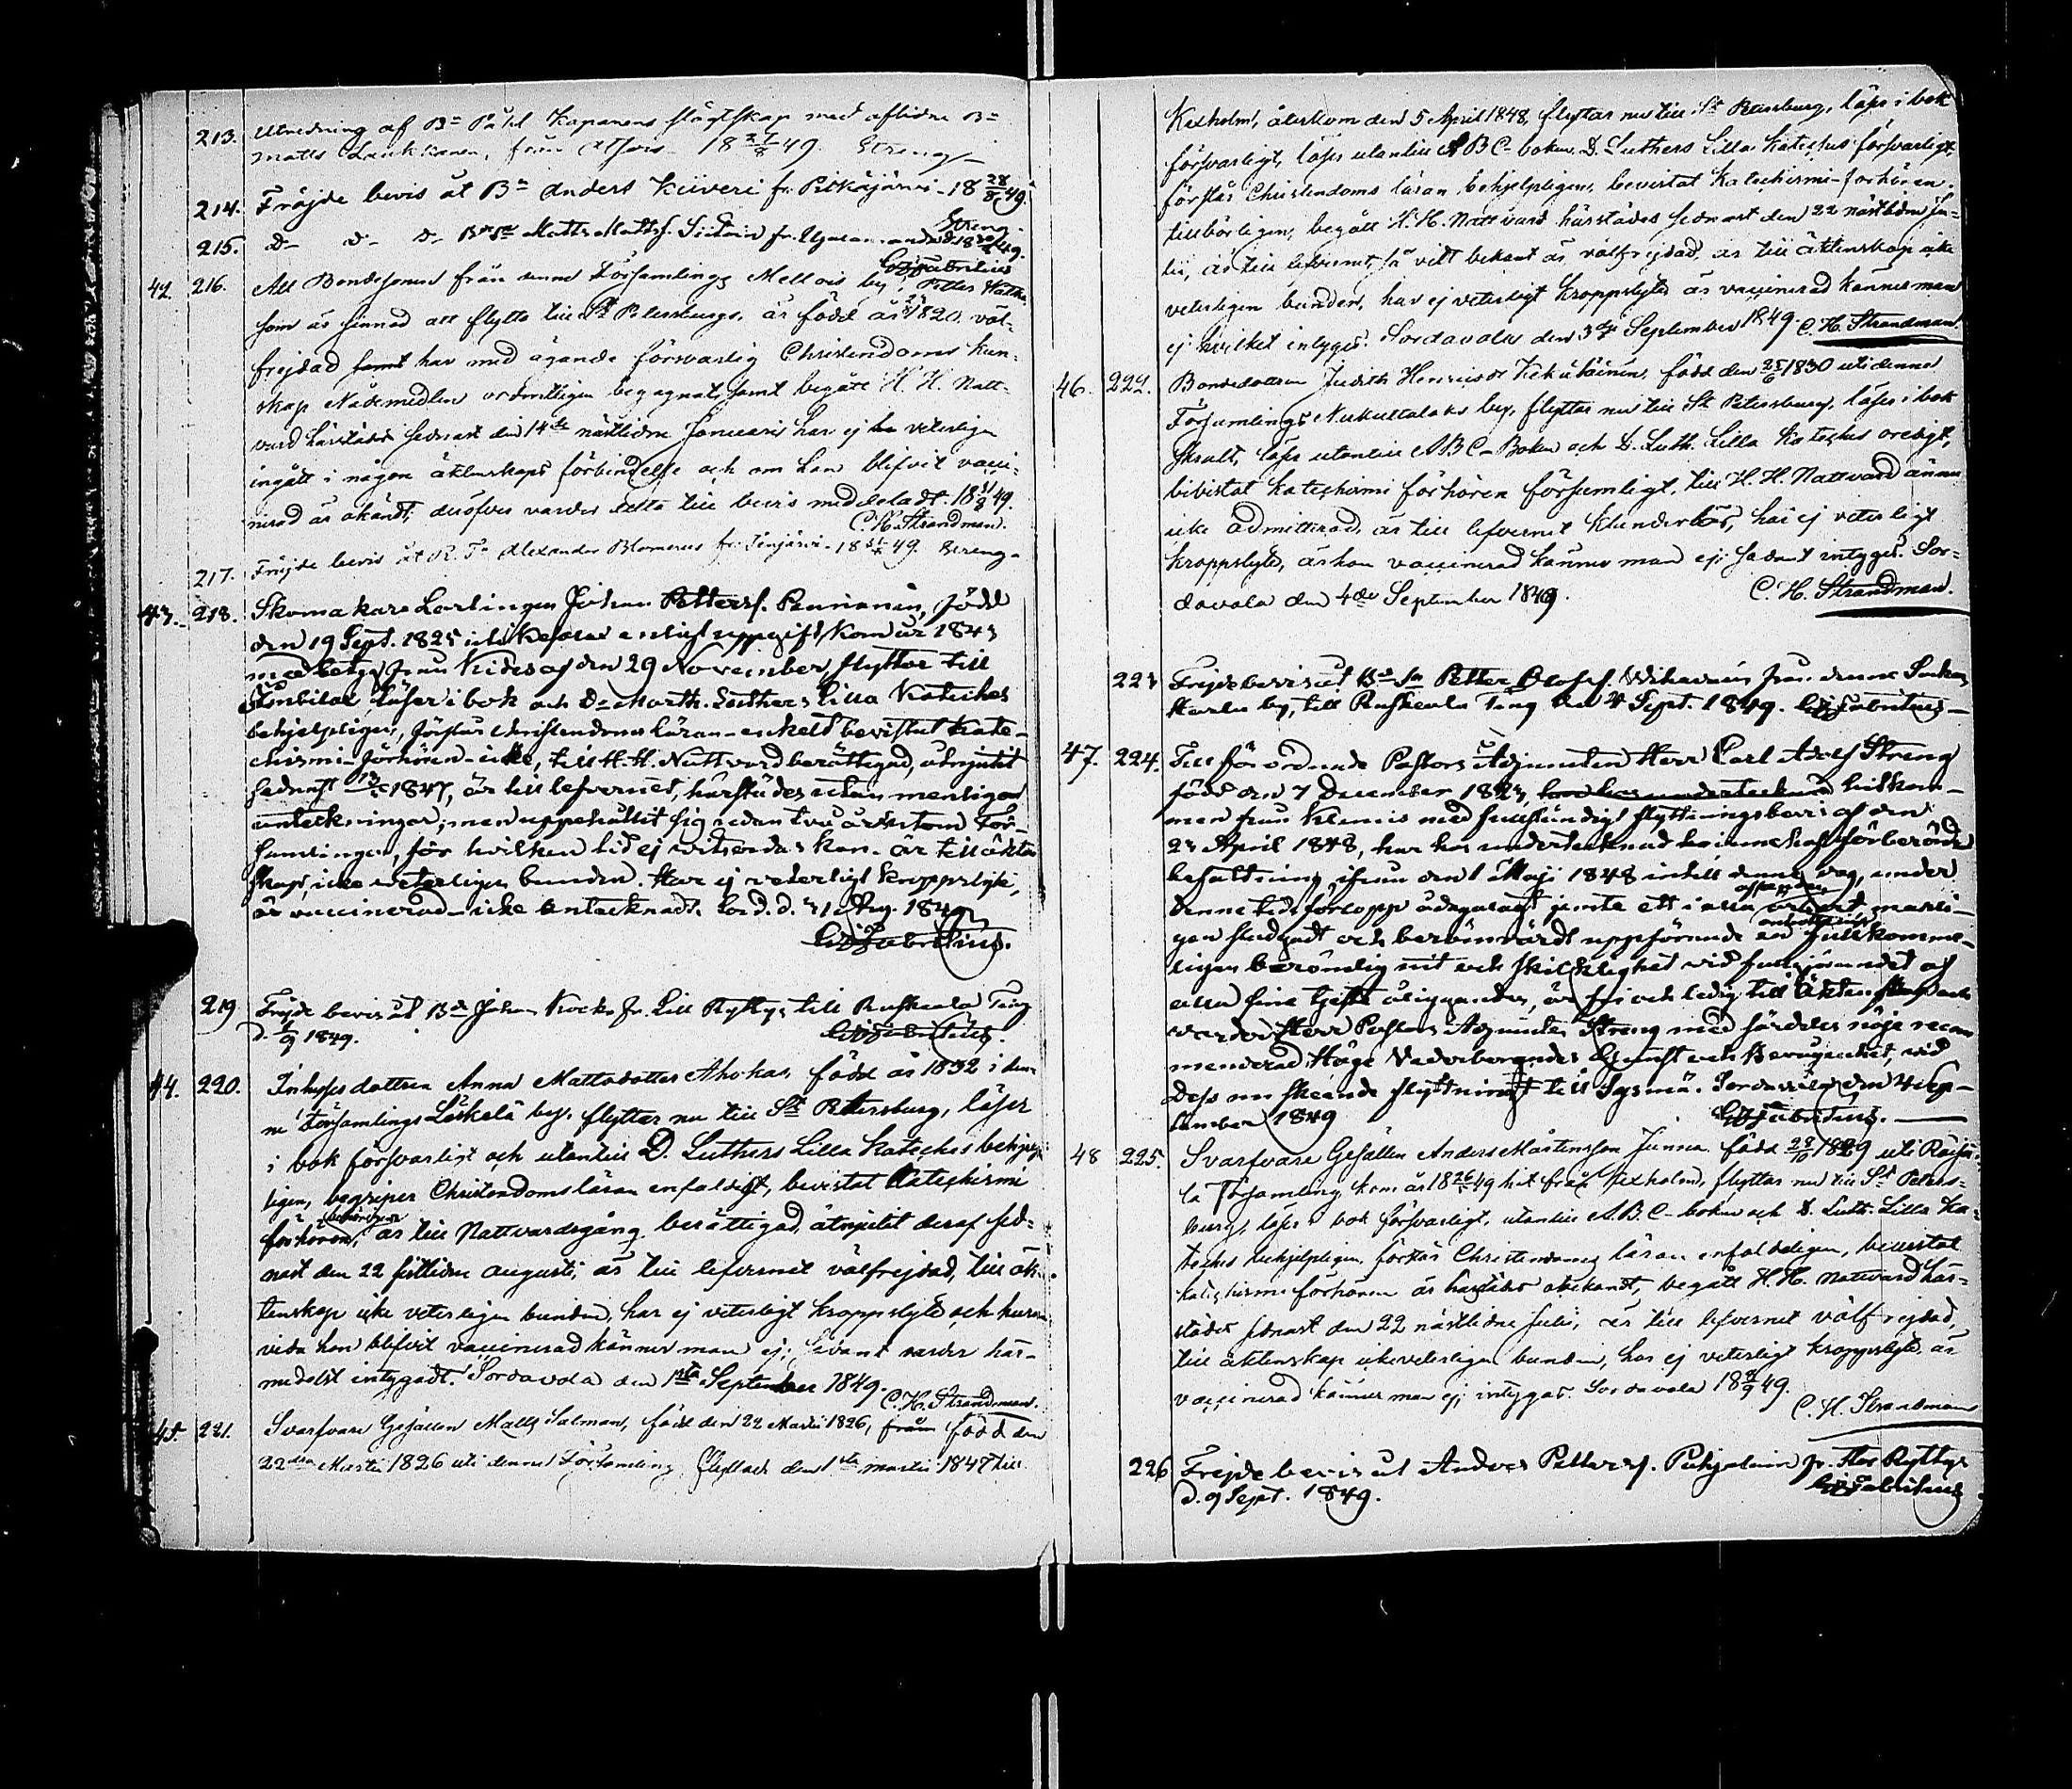 213. Utredning af Bn Påhl Kapanens slägtskap med aflidne Bn
Matts Laukkanen, från Otsois 18 27/8 49. Streng
214. Fräjde bevis åt Bn Anders Kiiveri fr. Pitkäjärvi 18 28/8 49.
Streng
215. D- D- D- Bdesn Matts Mattss. fr. 18 30/8 49.
Fabritius
42. 216. Att Bondesonen från denna Församlings Mellois by, Petter
som är sinnad att flytta till St Petersburg, är född år 1820, väl-
frejdad samt har med ägande försvarlig Christendoms kun-
skap Nådemedlen ordentligen begagnat, samt begått H. H. Natt-
vard härstädes sednast den 14de nästlidne Januarii har ej veterligen
ingått i någon äktenskaps förbindelse och om han blifvit vacci-
nerad är okändt; deröfver varder detta till bevis meddeladt. 18 31/8 49.
C. H. Strandman.
217. Fräjde bevis åt Alexander Blomerus fr. 18 31/8 49. Streng
43. 218. Skomakare Lärlingen Johan Petterss. Pennanen, född
den 19 Sept. 1825 uti enligt uppgift, kom år 1843
med betyg från Kides af den 29 November, flyttar till
läser i bok och D- Marth. Luthers Lilla Kateches
behjelpligen, förstår Christendoms läran enkelt bevistat Kate-
chismi-förhören icke, till H. H. Nattvard berättigad, åtnjutit
sednast 1847, är till lefvernet, härstädes utan menliga
anteckningar, men uppehållit sig sedan två år utom För-
samlingen, för hvilken tid ej vitsordas kan. är till äkten-
skap, icke veterligen bunden. Har ej veterligt kroppslyte,
är vaccinerad icke antecknadt. Sord. d. 31 Aug. 1849
Fabritius.
219 Frejde bevis åt Bdn Johan fr. Lill Rytty, till Ruskeala Ting
d. 1/9 1849. Fabritius.
44. 220. Inhyses dottern Anna Mattsdotter Ahokas, född år 1832 i den-
na Församlings Läskelä by, flyttar nu till St Petersburg, läser
i bok försvarligt och utantill D. Luthers Lilla Kateches behjelp-
ligen, begriper Christendomsläran enfaldigt, bevistat Katechismi
förhören, är till Nattvardsgång berättigad, åtnjutit deraf sed-
nast den 22 sistlidne Augusti, är till lefvernet välfrejdad, till äk-
tenskap icke veterligen bunden, har ej veterligt kroppslyte och huru-
vida hon blifvit vaccinerad känner man ej; sådant varder här-
medelst intygadt. Sordavala den 1sta September 1849.
C. H. Strandman.
45. 221. Svarfvare Gesällen Matts Salman, född den 22 Martii 1826, från född den
22dra Martii 1826 uti denna Församling flyttade den 1sta martii 1847 till
Kexholm, återkom den 5 April 1848, flyttar nu till St Petersburg, läser i bok
försvarligt, läser utantill ABC-boken, D. Luthers Lilla Kateches försvarligt,
förstår Christendoms läran behjelpligen, bevistat Katechismi-förhören
tillbörligen, begått H. H. Nattvard härstädes sednast den 22 nästlidne Ju-
lii, är till lefvernet, så vidt bekant är, välfrejdad, är till äktenskap icke
veterligen bunden, har ej veterligt kroppslyte, är vaccinerad känner man
ej hvilket intygas. Sordavala den 3dje September 1849. C. H. Strandman
46. 222. Bondedottren Judith Henricsdr Kekäläinen, född den 25/6 1830 uti denna
Församlings Nukuttalaks by, flyttar nu till St Petersburg, läser i bok
skralt, läser utantill ABC-Boken och D. Luth. Lilla Kateches oredigt,
bivistat Katechismi förhören försumligt, till H. H. Nattvard ännu
icke admitterad, är till lefvernet klanderlös, har ej veterligt
kroppslyte, är hon vaccinerad känner man ej; sådant intygas. Sor-
davala den 4de September 1849. C. H. Strandman.
223 Frejdebevis åt Bdesn Petter Olofss. från denna Sockens
by, till Ruskeala Ting den 4 Sept. 1849. Fabritius
47. 224. Till förordnade Pastors Adjuncten Herr Carl Adolf Streng
född den 7 December 1823, har hos undertecknad hitkom-
men från Klemis med fullständigt flyttningsbevis af den
23 April 1848, har hos undertecknad innehaft förberörde
befattning, ifrån den 1 Maji 1848 intill denna dag, under
denna tids förlopp ådagalagt jemte ett i allo
gen stadgadt och berömvärdt uppförande fullkomme-
ligen berömlig nit och skicklighet vid fullgörandet af
alla sina tjenste åligganden, är fri och ledig till Äktenskap och
varder Herr Pastors Adjuncten Streng med särdeles nöje recom-
menderad Höge Vederbörandes Gunst och Bevågenhet, vid
dess nu skeende flyttning till Sysmä. Sordavala den 4 Sep-
tember 1849 Fabritius.
48 225. Svarfvare Gesällen Anders Mårtensson Junna född 28/10 1829 uti Räisä-
lä Församling kom år 1849 hit från Kexholm, flyttar nu till St Peters-
burg, läser i bok försvarligt, utantill A.B.C-boken och D. Luth. Lilla Ka-
teches behjelpligen, förstår Christendoms läran enfaldeligen, bevistat
Katechismi förhören är härstädes obekant, begått H. H. Nattvard här-
städes sednast den 22 nästlidne Julii, är till lefvernet välfrejdad,
till äktenskap icke veterligen bunden, har ej veterligt kroppslyte, är
vaccinerad känner man ej; intygas. Sordavala 18 8/9 49.
C. H. Strandman
226 Frejde bevis åt Anders Petterss. Puhjalain fr. Stor Ryttys
d. 9 Sept. 1849. Fabritius